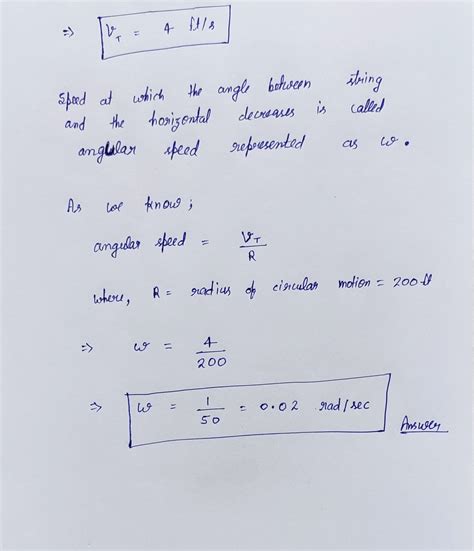 => V_T = 4 ft/s
Speed at which the angle between string
and the horizontal decreases is called
angular speed represented as ω.
As we know;
angular speed = V_T / R
where, R = radius of circular motion = 200 ft
=> ω = 4 / 200
=> ω = 1 / 50 = 0.02 rad/sec
Answer